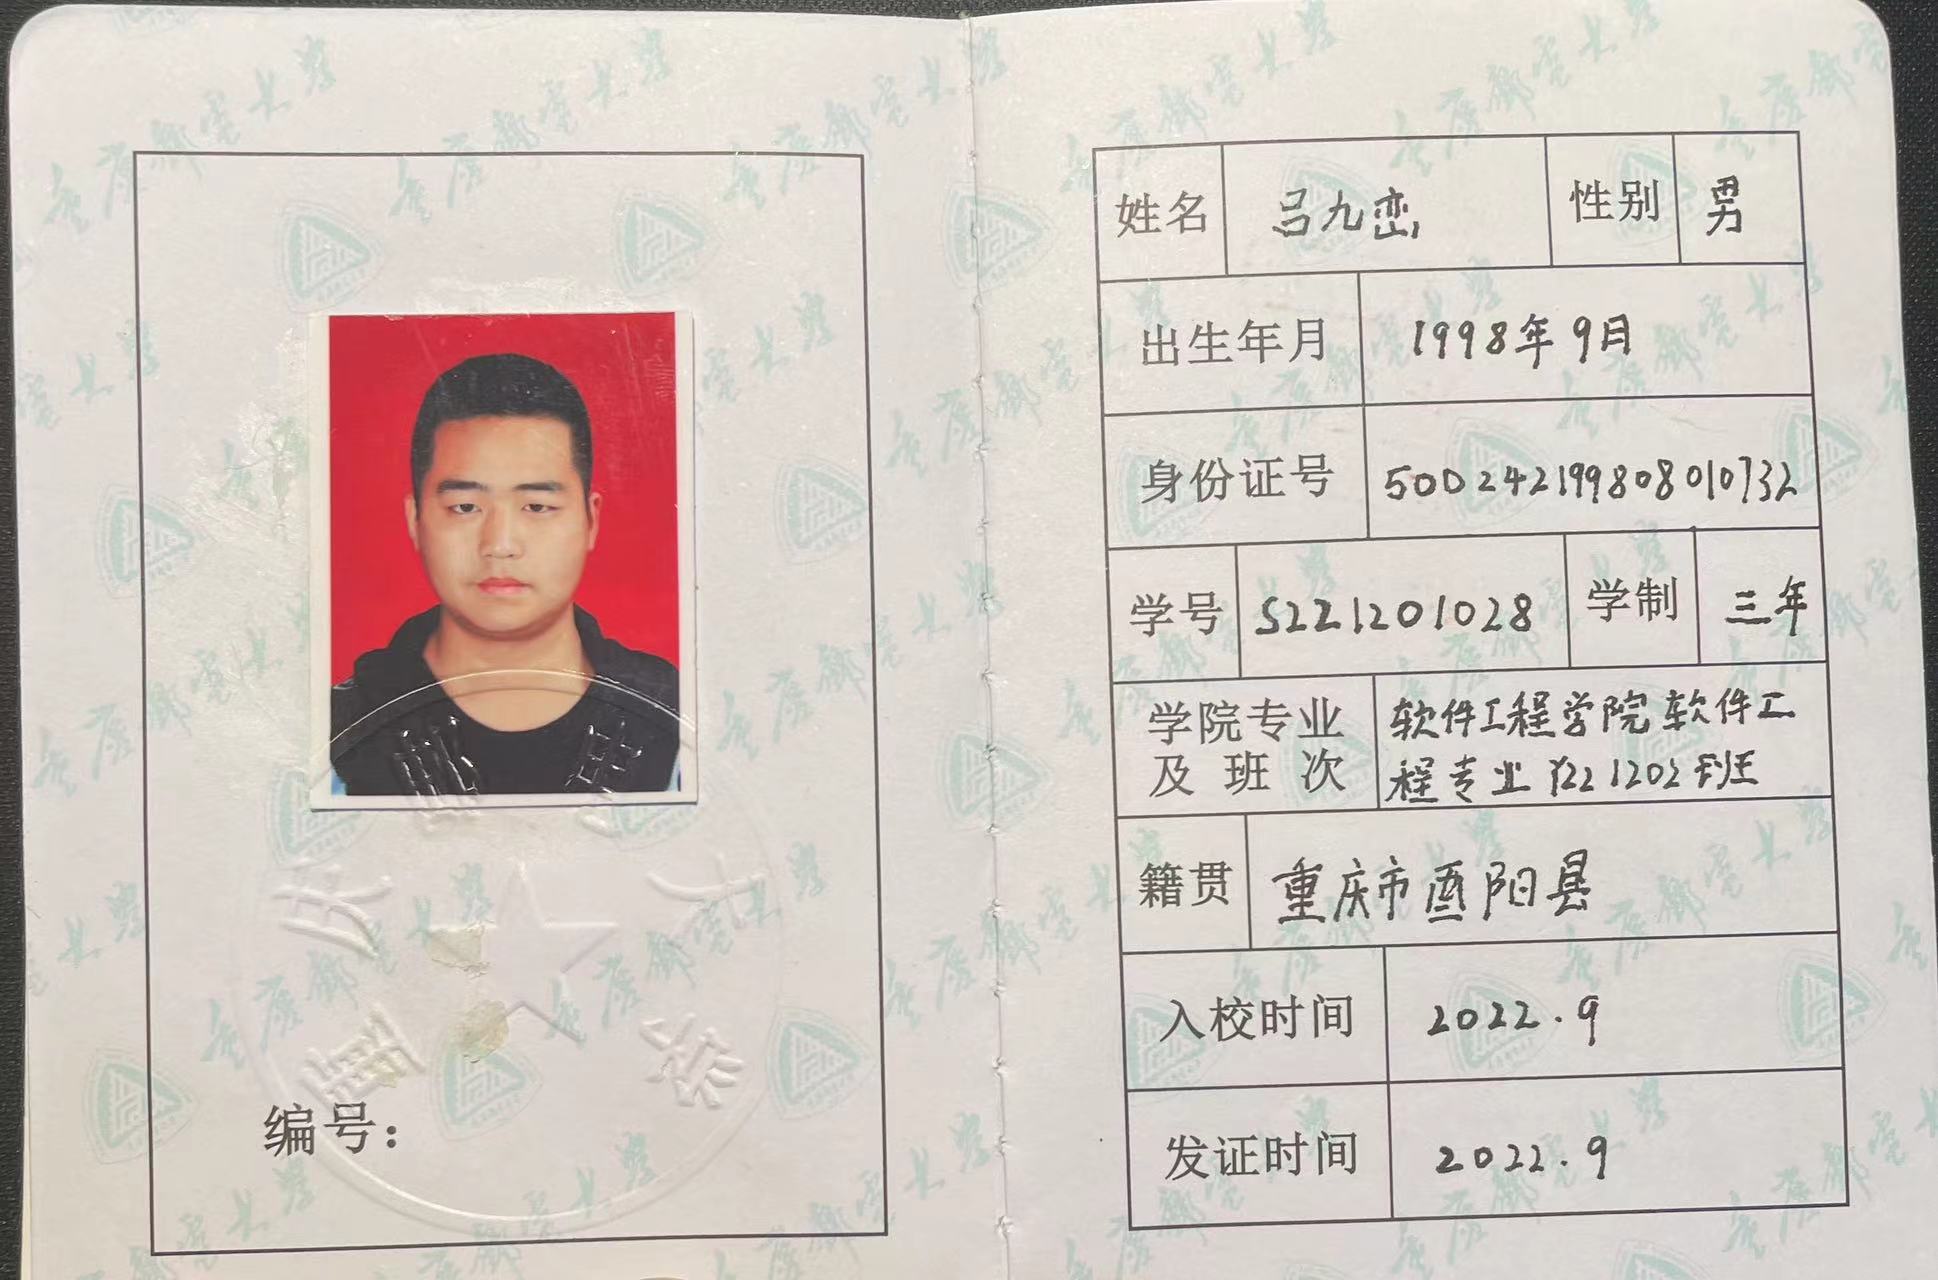 编号：
姓名 吕九峦 性别 男
出生年月 1998年9月
身份证号 500242199808010732
学号 S221201028 学制 三年
学院专业及班次 软件工程学院软件工
程专业Y221202班
籍贯 重庆市酉阳县
入校时间 2022.9
发证时间 2022.9